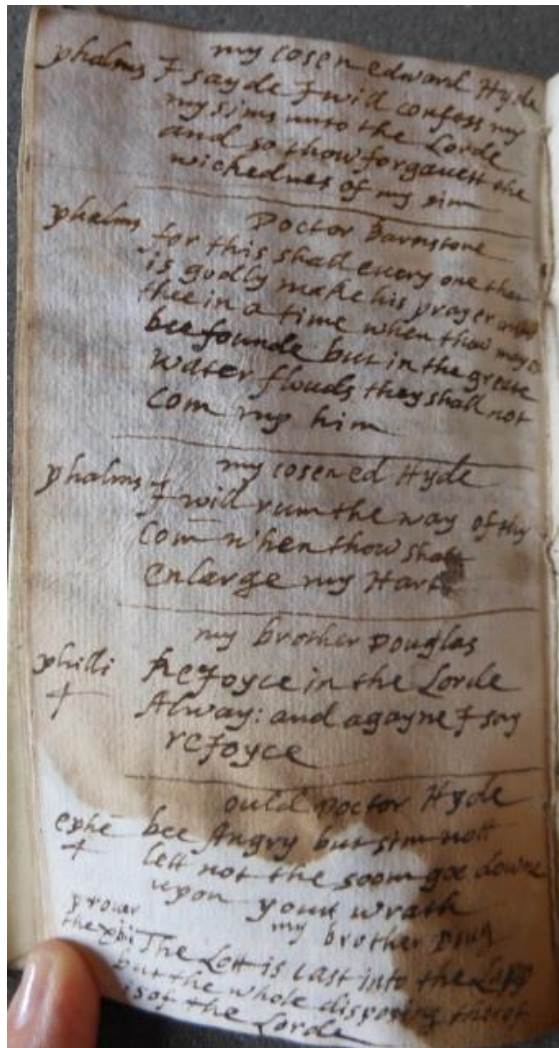 my cosen edward Hyde
phalms I sayde I will confess my
my sims unto the Lorde
and so thow forgauest the
wichednes of my sim
Doctor Barnstone
phalms for this shall euery one that
is godly make his prayer
thee in a time when thow
bee founde but in the greate
water flouds they shall not
com my him
my cosen ed Hyde
phalms I will rum the way of thy
com when thow shalt
enlarge my Hart
my brother Douglas
philli ReJoyce in the Lorde
4 Alway: and agayne I say
reJoyce
ould Doctor Hyde
ephe bee Angry but sim nott
4 lett not the soom goe downe
upon your wrath
my brother Dug
prouer
the The Lott is cast into the Lapp
but the whole disposing therof
is of the Lorde